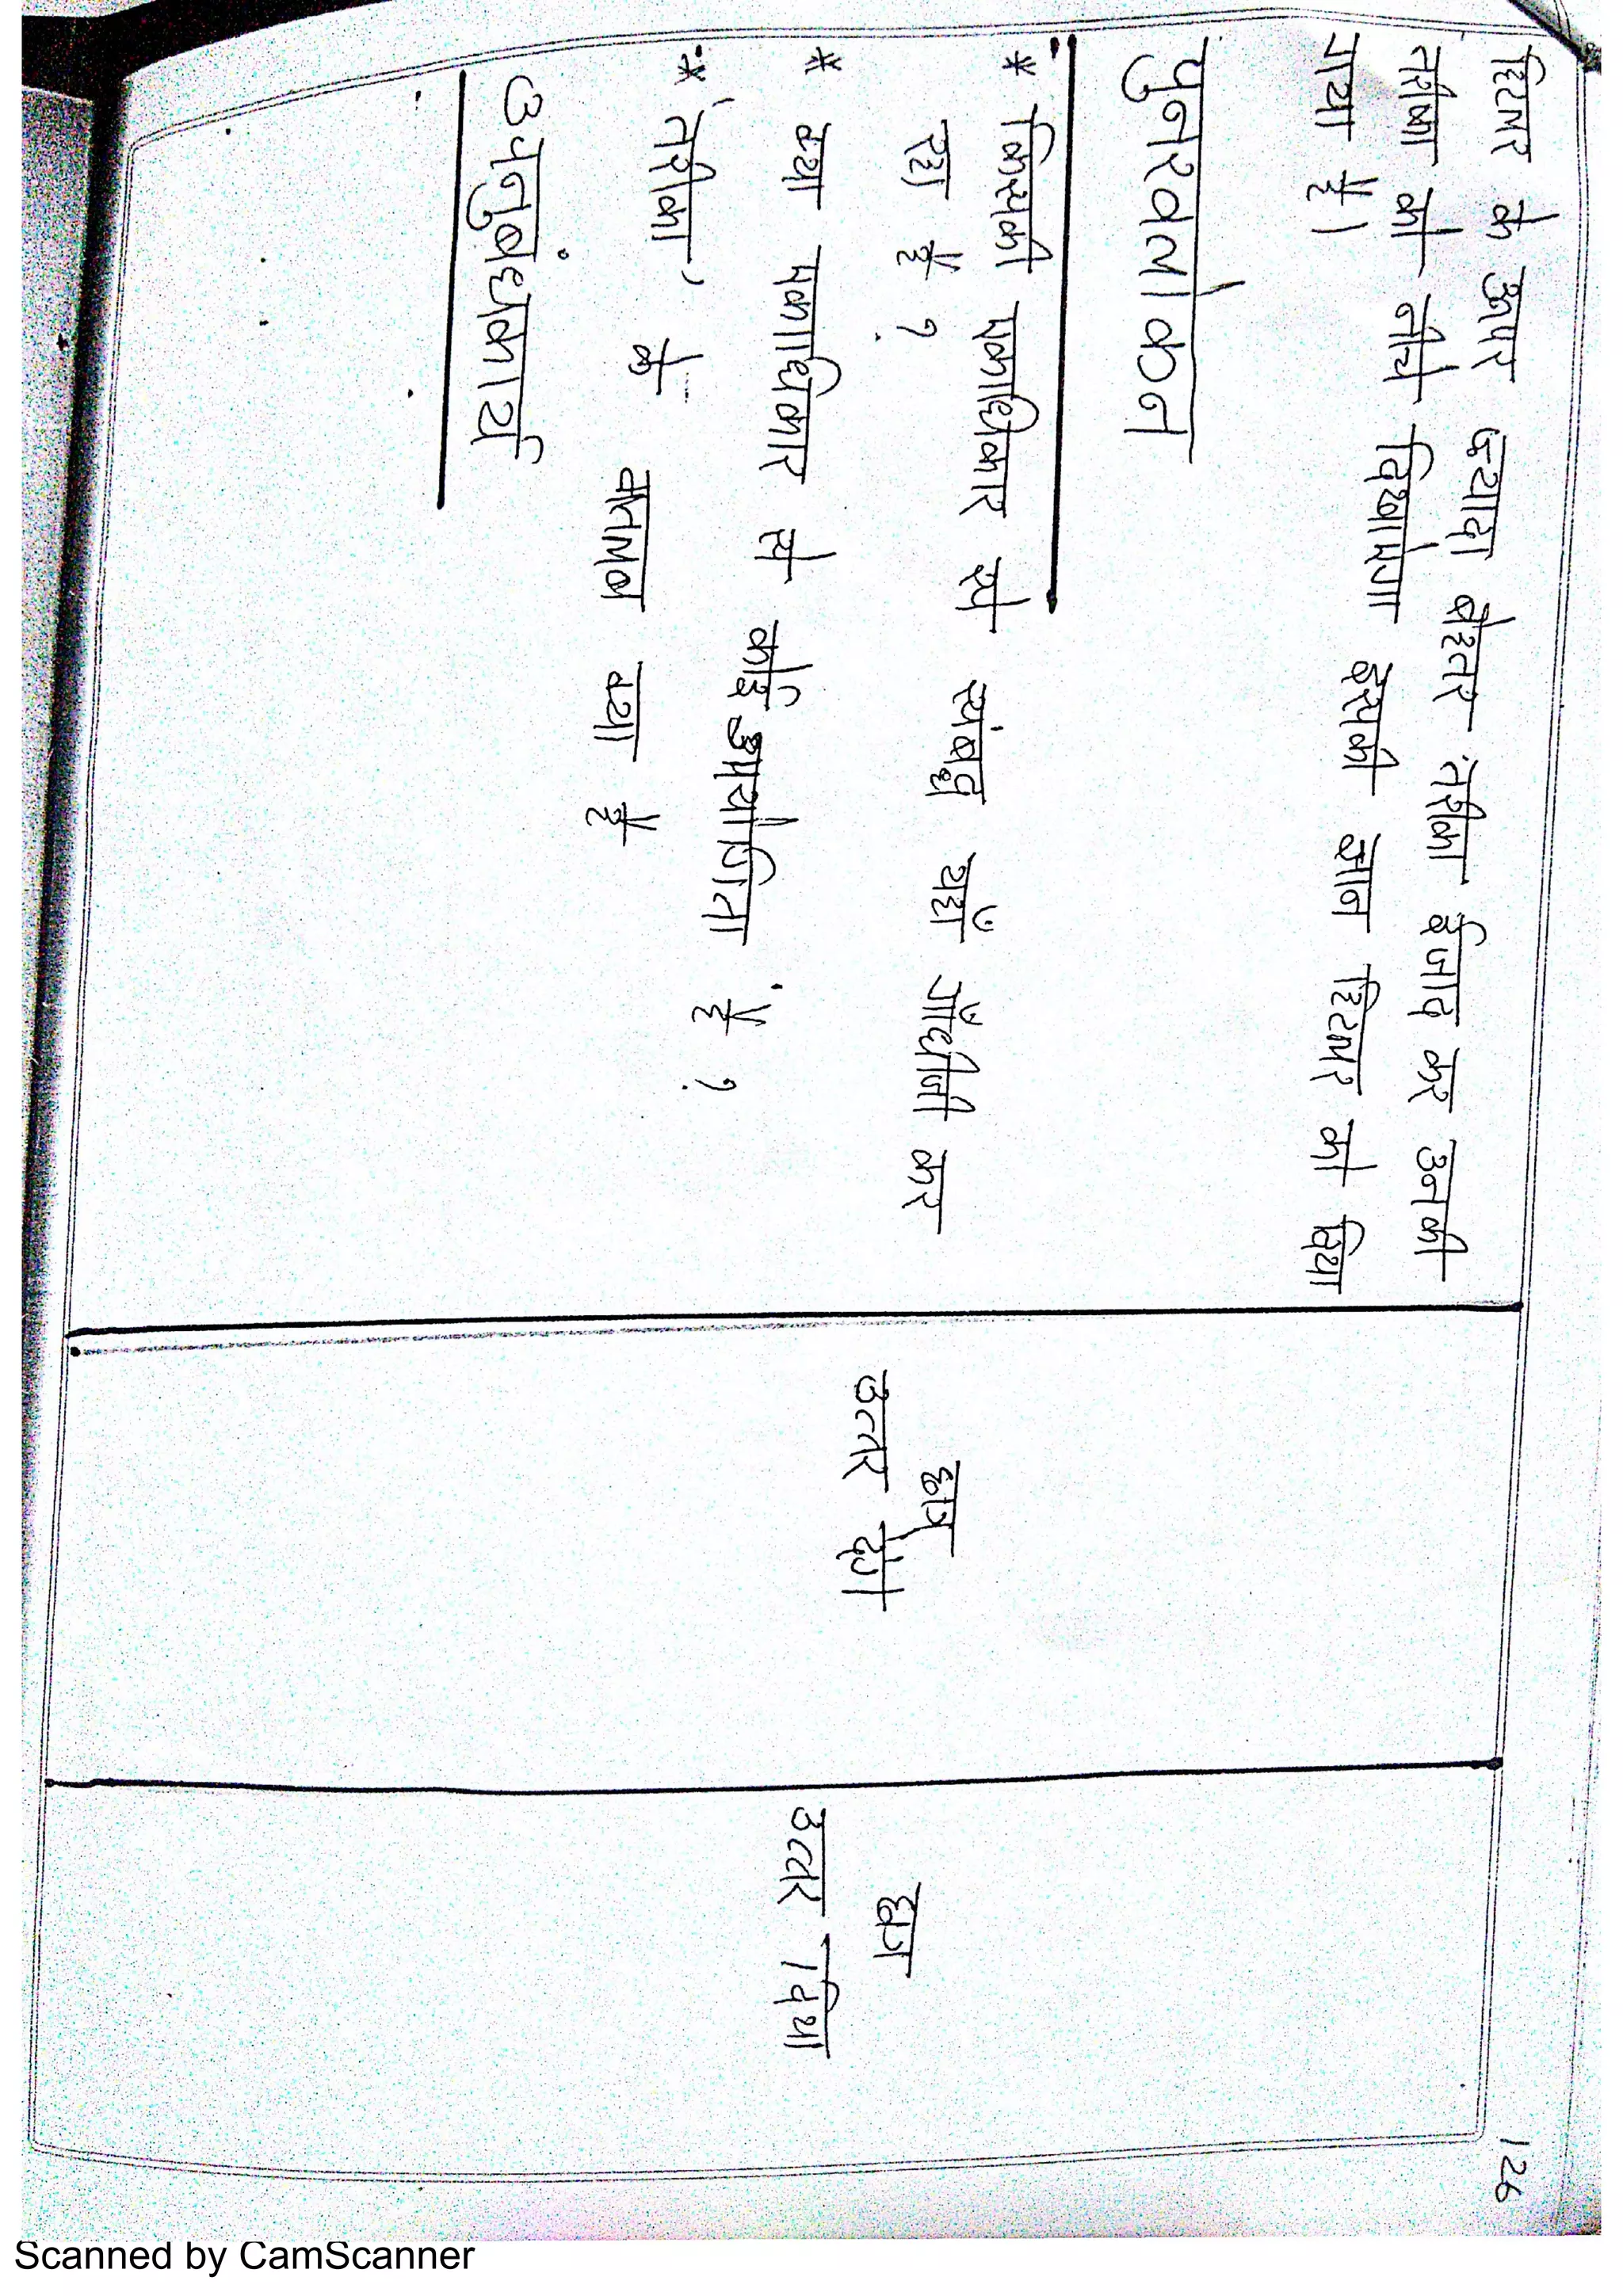 126
हिटलर के ऊपर ज़्यादा बेहतर तरीका ईजाद कर उनकी
तरीका को नीचे दिखाएगा इसकी ज्ञान हिटलर को दिया
गया है।
पुनरवलोकन
* किसकी एकाधिकार से संबद्ध यहाँ गाँधीजी कर
रहा है ?
* क्या एकाधिकार से कोई उपयोगिता है ?
* 'तरीका' के मतलब क्या है
अनुबंधकार्य
छात्र
उत्तर देंगे
छात्र
उत्तर दिया
Scanned by CamScanner